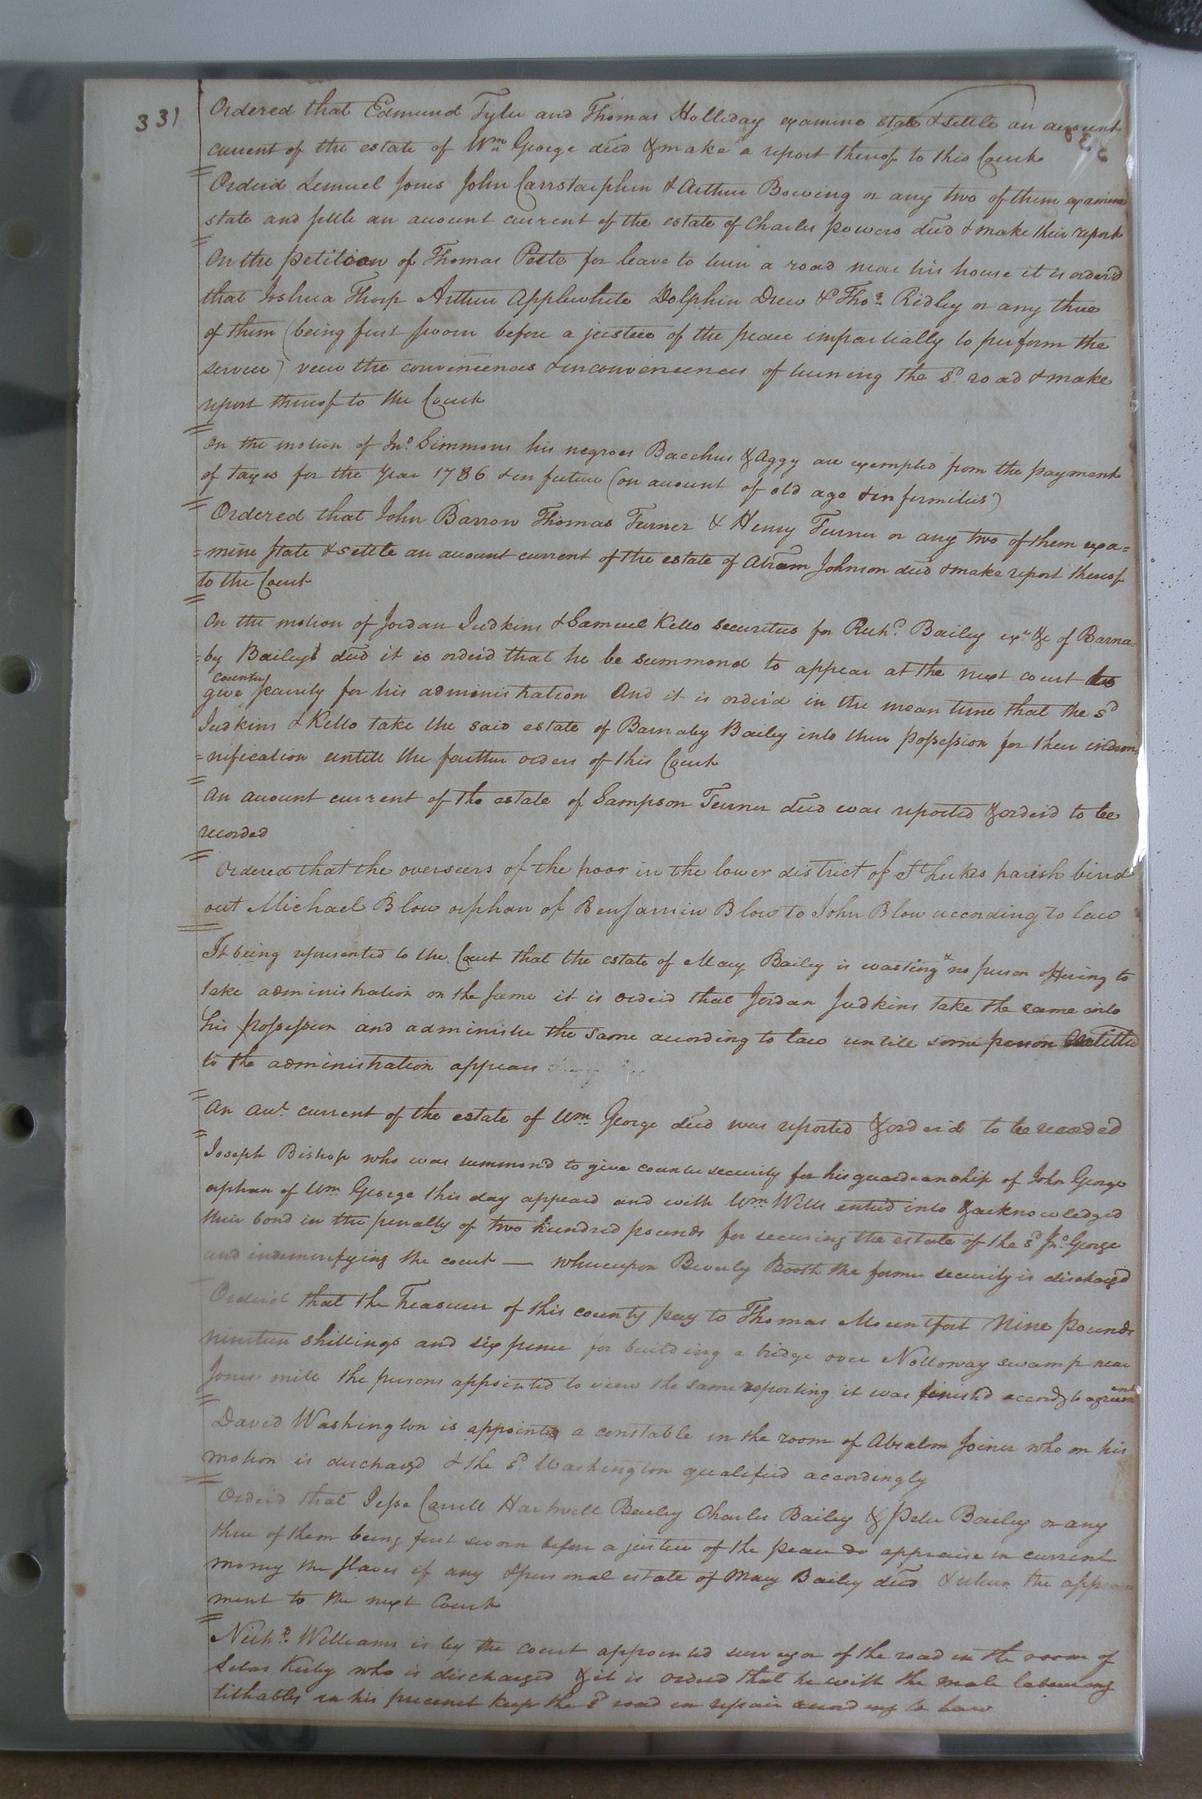 331
Ordered that Edmund Tyler and Thomas Holliday examine state & settle an account
current of the estate of Wm George deēd & make a report thereof to this Court
Orderd Lemuel Jones John Carrstarphen & Arthur Bowing or any two of them examine
state and settle an account current of the estate of Charles powers deēd & make their report
On the petition of Thomas Pete for leave to turn a road near his house it is orderd
that Joshua Thorp Arthur Applewhite Dolphin Drew & Thos Ridley or any three
of them (being first sworn before a justice of the peace impartially to perform the
service) view the conveniences & inconveniences of turning the sd road & make
report thereof to the Court
On the motion of Jno Simmons his negroes Bacchus & Aggy are exempted from the payment
of taxes for the Year 1786 & in future (on account of old age & infirmities)
Ordered that John Barrow Thomas Turner & Henry Turner or any two of them exa=
=mine state & settle an account current of the estate of Abram Johnson deēd & make report thereof
to the Court
On the motion of Jordan Judkins & Samuel Kello securities for Richd Bailey exr &c of Barna
=by Bailey deēd it is orderd that he be summond to appear at the next court to
give counter security for his administration And it is orderd in the mean time that the sd
Judkins & Kello take the said estate of Barnaby Bailey into their possession for their indem
=nification untill the further orders of this Court
An account current of the estate of Sampson Turner deēd was reported & orderd to be
recorded
Ordered that the overseers of the poor in the lower district of St Lukes parish bind
out Michael Blow orphan of Benjamin Blow to John Blow according to law
It being represented to the Court that the estate of Mary Bailey is wasting & no person offering to
take administration on the same it is orderd that Jordan Judkins take the same into
his possession and administer the same according to law untill some person entitled
to the administration appears
An acct current of the estate of Wm George deēd was reported & orderd to be recorded
Joseph Bishop who was summond to give counter security for his guardianship of John George
orphan of Wm George this day appeard and with Wm Wills enterd into & acknowledged
their bond in the penalty of two hundred pounds for securing the estate of the sd Jno George
and indemnifying the court — whereupon Beverly Booth the former security is discharged
Orderd that the Treasurer of this county pay to Thomas Mountfort Nine pounds
nineteen shillings and six pence for building a bridge over Nottoway swamp near
Jones's mill the persons appointed to view the same reporting it was finishd accordg to agreement
David Washington is appointed a constable in the room of Absalom Joiner who on his
motion is discharged & the sd Washington qualified accordingly
Orderd that Jesse Carrell Hartwell Bailey Charles Bailey & Peter Bailey or any
three of them being first sworn before a justice of the peace do appraise in current
money the slaves if any & personal estate of Mary Bailey deēd & return the appraise
ment to the next Court
Nichs Williams is by the court appointed surveyor of the road in the room of
Silas Kirby who is discharged & it is orderd that he with the male labouring
tithables in his precinct keep the sd road in repair according to law